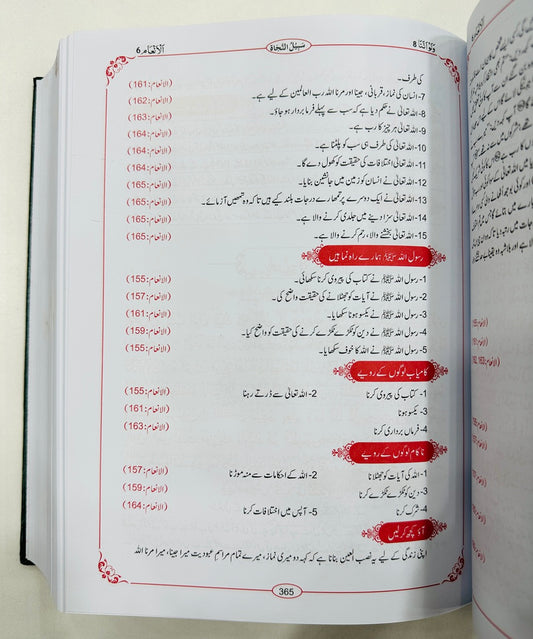 وَلَوْ اَنَّنَا 8 سَبِیْلُ النَّجَاۃِ اَلْاَنْعَام 6
کی طرف۔ (الانعام:161)
7- انسان کی نماز، قربانی، جینا اور مرنا اللہ رب العالمین کے لیے ہے۔ (الانعام:162)
8- اللہ تعالیٰ نے حکم دیا ہے کہ سب سے پہلے فرمابردار ہو جاؤ۔ (الانعام:163)
9- اللہ تعالیٰ ہر چیز کا رب ہے۔ (الانعام:164)
10- اللہ تعالیٰ کی طرف ہی سب کو پلٹنا ہے۔ (الانعام:164)
11- اللہ تعالیٰ اختلافات کی حقیقت کو کھول دے گا۔ (الانعام:164)
12- اللہ تعالیٰ نے انسان کو زمین میں جانشین بنایا۔ (الانعام:165)
13- اللہ تعالیٰ نے ایک دوسرے پر تمہارے درجات بلند کیے ہیں تاکہ وہ تمہیں آزمائے۔ (الانعام:165)
14- اللہ تعالیٰ سزا دینے میں جلدی کرنے والا ہے۔ (الانعام:165)
15- اللہ تعالیٰ بخشنے والا، رحم کرنے والا ہے۔ (الانعام:165)
رسول اللہ ﷺ ہمارے راہ نما ہیں
1- رسول اللہ ﷺ نے کتاب کی پیروی کرنا سکھائی۔ (الانعام:155)
2- رسول اللہ ﷺ نے آیات کو جھٹلانے کی حقیقت واضح کی۔ (الانعام:157)
3- رسول اللہ ﷺ نے یکسو ہونا سکھایا۔ (الانعام:161)
4- رسول اللہ ﷺ نے دین کو ٹکڑے ٹکڑے کرنے کی حقیقت کو واضح کیا۔ (الانعام:159)
5- رسول اللہ ﷺ نے اللہ کا خوف سکھایا۔ (الانعام:155)
کامیاب لوگوں کے رویے
1- کتاب کی پیروی کرنا 2- اللہ تعالیٰ سے ڈرتے رہنا (الانعام:155)
3- یکسو ہونا (الانعام:161)
4- فرماں برداری کرنا (الانعام:163)
ناکام لوگوں کے رویے
1- اللہ کی آیات کو جھٹلانا 2- اللہ کے احکامات سے منہ موڑنا (الانعام:157)
3- دین کو ٹکڑے ٹکڑے کرنا (الانعام:159)
4- شرک کرنا 5- آپس میں اختلافات کرنا (الانعام:164)
آؤ کچھ کر لیں
اپنی زندگی کے لیے یہ نصب العین بنانا ہے کہ کہہ دو میری نماز، میرے تمام مراسمِ عبودیت میرا جینا، میرا مرنا اللہ
365